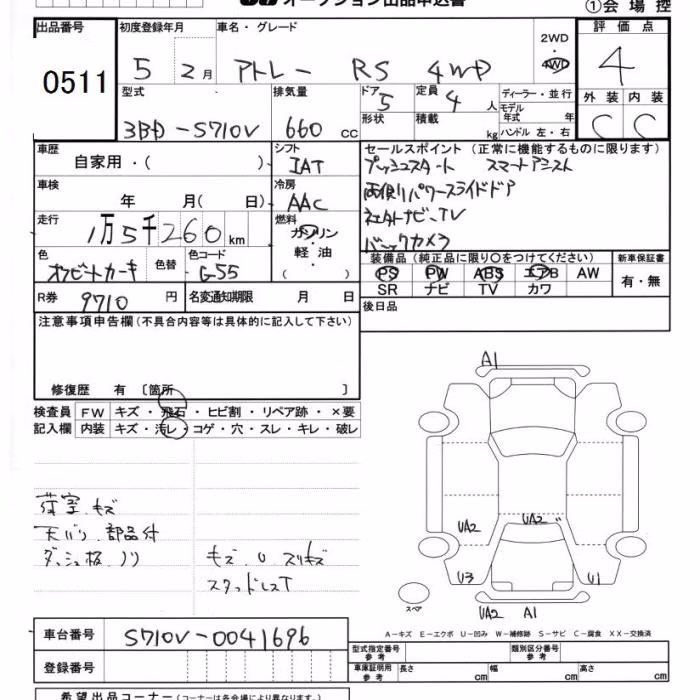 オークション出品申込書 ①会場控
出品番号 0511
初度登録年月 5 2月
車名・グレード アトレー RS 4WD
2WD
4WD
評価点 4
外装 内装
C C
型式 3BD-S710V
排気量 660 cc
ドア 5
定員 4 人
形状 積載 kg
ディーラー・並行
モデル
年式 年
ハンドル 左・右
車歴 自家用・( )
シフト IAT
車検 年 月( 日)
冷房 AAC
走行 1万5千260km
燃料 ガソリン
・
軽油
・
( )
色 オフビートカーキ 色替 色コード G-55
R券 9710 円 名変通知期限 月 日
セールスポイント (正常に機能するものに限ります)
プッシュスタート スマートアシスト
両側パワースライドドア
社外ナビ.TV
バックカメラ
装備品 (純正品に限り〇をつけてください) 新車保証書
PS PW ABS エアB AW 有・無
SR ナビ TV カワ
後日品
注意事項申告欄(不具合内容等は具体的に記入して下さい)
修復歴 有 〔箇所 〕
検査員 FW キズ・飛石・ヒビ割・リペア跡・×要
記入欄 内装 キズ・汚レ・コゲ・穴・スレ・キレ・破レ
荷室.キズ
天バリ.部品付
ダッシュ板.ノリ
キズ.U.スリキズ
スタッドレスT
A1
UA2 UA2
U3 U1
スペア UA2 A1
A-キズ E-エクボ U-凹み W-補修跡 S-サビ C-腐食 XX-交換済
車台番号 S710V-0041696
登録番号
型式指定番号
参考
類別区分番号
参考
車庫証明用
参考
長さ cm 幅 cm 高さ cm
希望出品コーナー(コーナーは各会場により異なります)